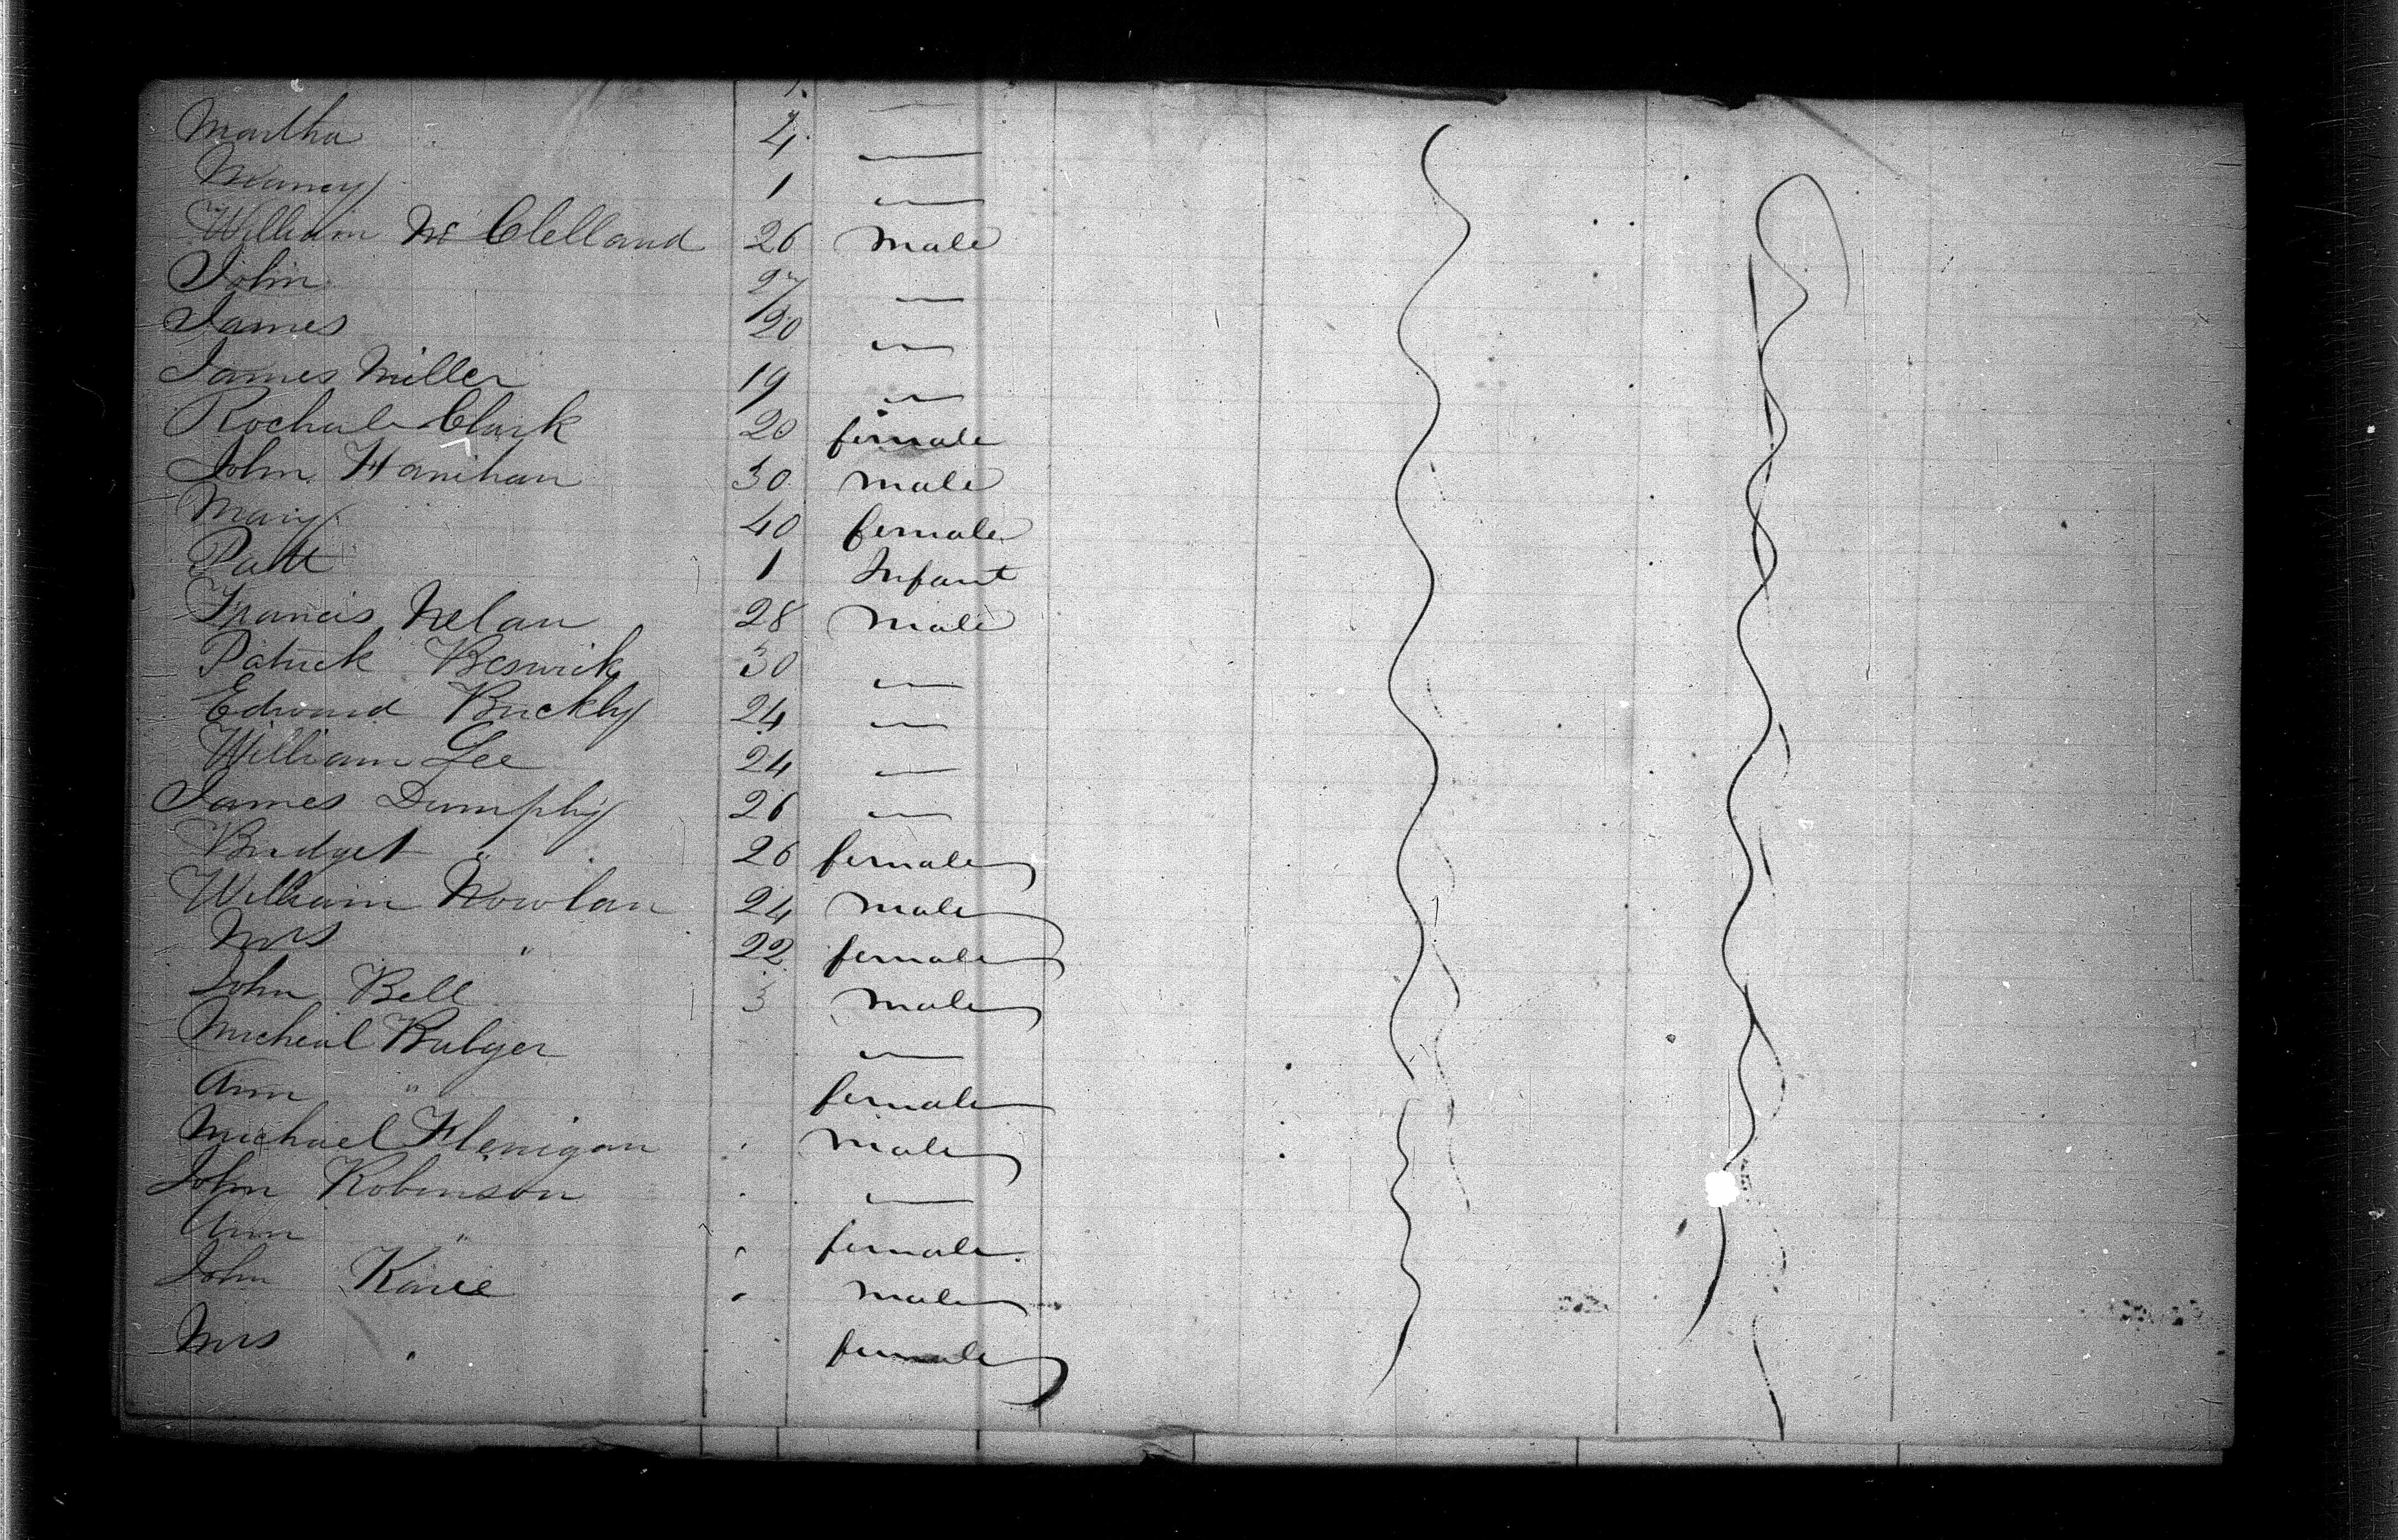 Martha 4 —
Nancy 1 —
William Mc Clelland 26 Male
John 27 —
James 20 —
James Miller 19 —
Rochale Clark 20 female
John Hanihan 30 male
Mary 40 female
Patt 1 Infant
Francis Nelan 28 Male
Patrick Beswick 30 —
Edward Buckley 24 —
William Lee 24 —
James Dumphy 26 —
Bridget " 26 female
William Nowlan 24 male
Mrs " 22 female
John Bell 3 male
Micheal Bulger —
Ann " female
Michael Flenigan male
John Robinson —
Ann " female
John Kane male
Mrs female